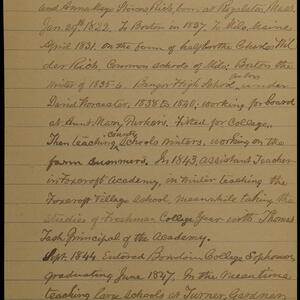 and Anna Rich born at Royalston Mass.
Jan. 29th 1822. To Boston in 1827. To Milo, Maine
April 1831. on the farm of half brother Charles Wil
der Rich. Common schools of Milo; Boston the
Winter of 1835-6. Bangor High School, under
David Worcester, 1838 to 1840; working for board
at Aunt Mary Parker's. Fitted for College.
Then teaching County Schools Winters, working on the
farm summers. In 1843, assistant Teacher
in Foxcroft Academy, in Winter teaching the
Foxcroft Village School, meanwhile taking the
studies of Freshman College Year with Thomas
Tash Principal of the Academy.
Sept. 1844 Entered Bowdoin College Sophomore,
graduating June 1847. In the meantime
teaching large schools at Turner, Gardner,